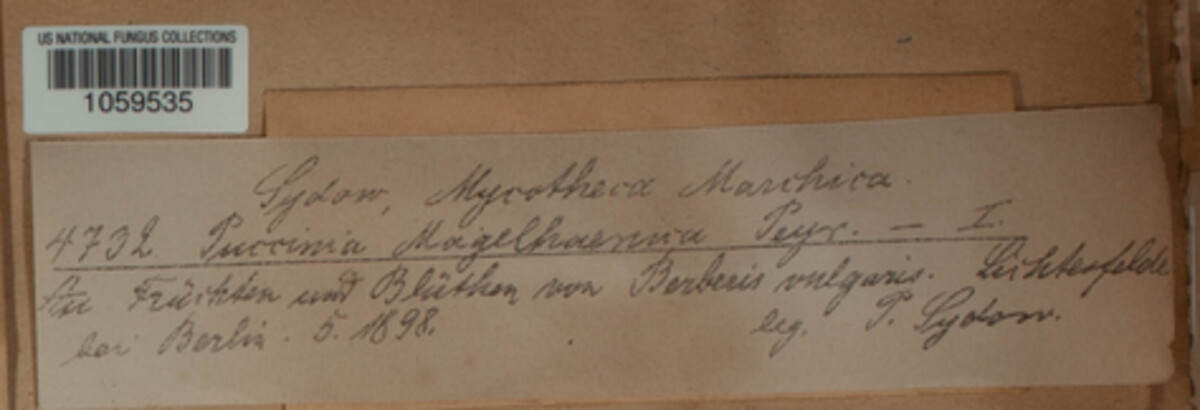 US NATIONAL FUNGUS COLLECTIONS
1059535
Sydow, Mycotheca Marchica.
4732. Puccinia Magelhaenica Peyr. — I.
An Früchten und Blüthen von Berberis vulgaris. Lichterfelde
bei Berlin. 5. 1898. leg. P. Sydow.